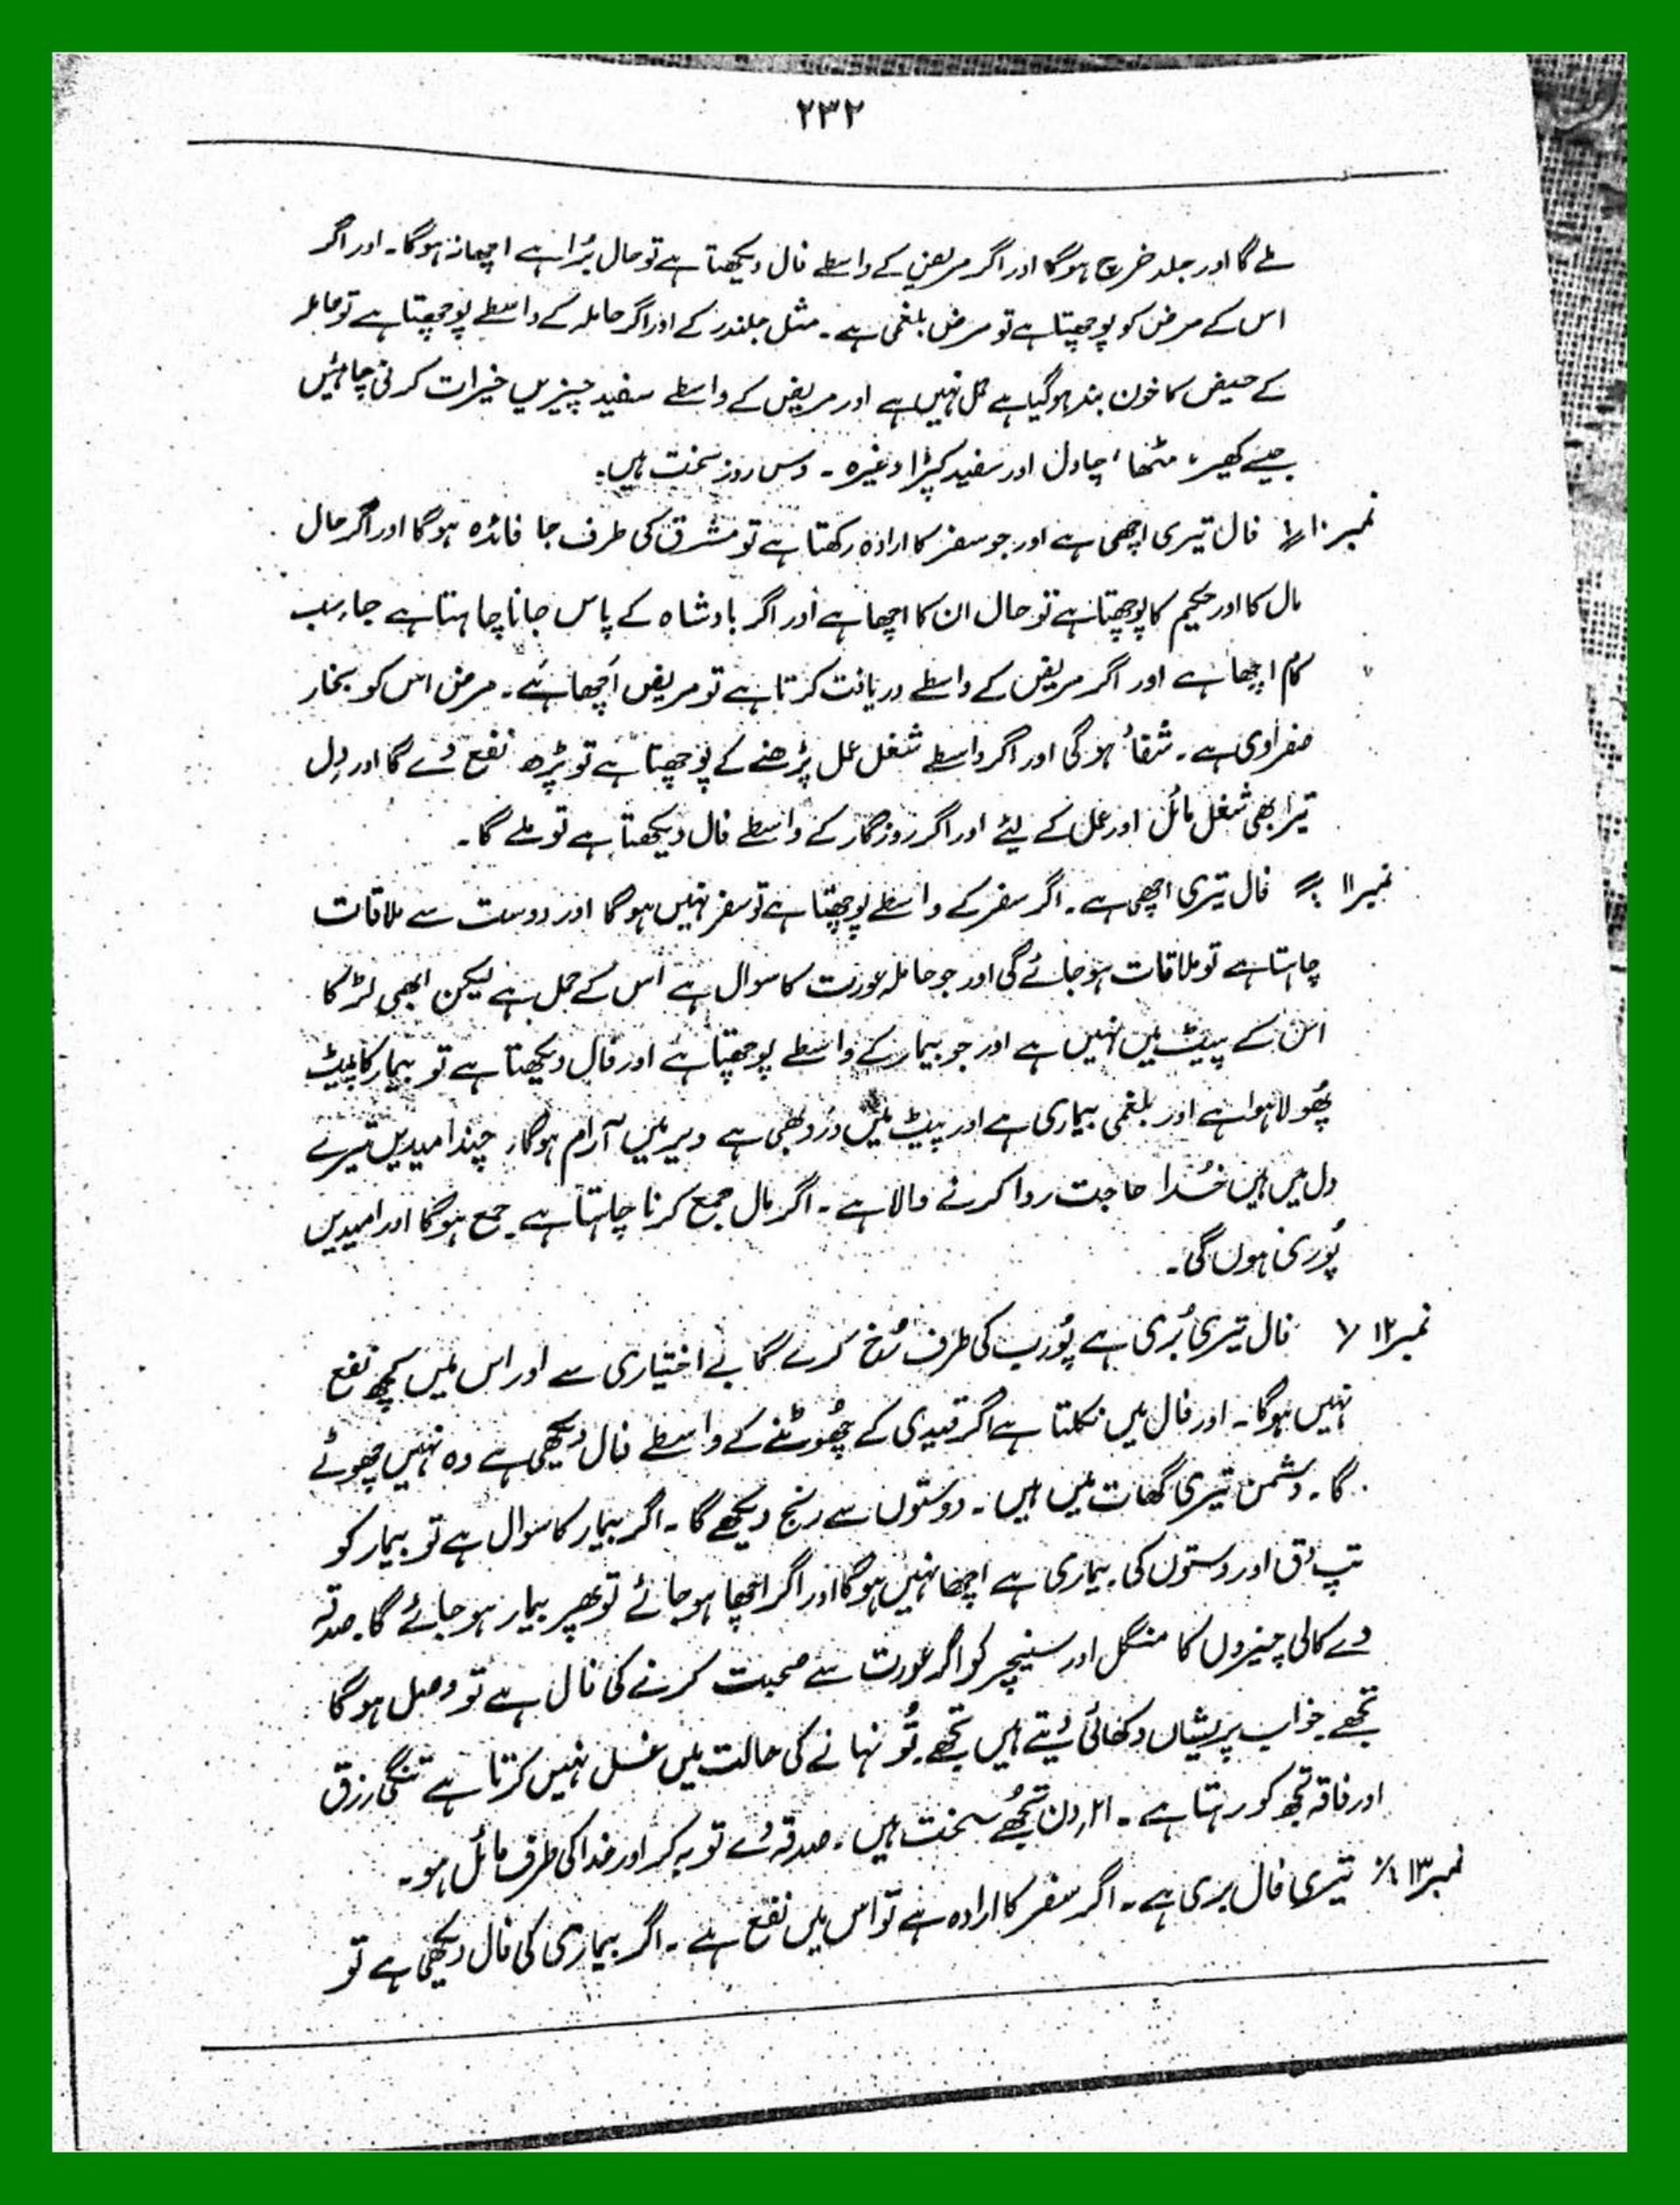 ۲۳۲
ملے گا اور جلد خرچ ہوگا اور اگر مریض کے واسطے فال دیکھتا ہے تو حال بُرا ہے اچھا نہ ہوگا۔ اور اگر
اس کے مرض کو پوچھتا ہے تو مرض بلغمی ہے۔ مثل جلندر کے اور اگر حاملہ کے واسطے پوچھتا ہے تو حاملہ
کے حیض کا خون بند ہوگیا ہے حمل نہیں ہے اور مریض کے واسطے سفید چیزیں خیرات کرنی چاہئیں
جیسے کھیر، مٹھا، چاول اور سفید کپڑا وغیرہ۔ دس روز سخت ہیں۔
نمبر ۱۰ فال تیری اچھی ہے اور جو سفر کا ارادہ رکھتا ہے تو مشرق کی طرف جا فائدہ ہوگا اور اگر حال
مال کا اور حکیم کا پوچھتا ہے تو حال ان کا اچھا ہے اور اگر بادشاہ کے پاس جانا چاہتا ہے جا، سب
کام اچھا ہے اور اگر مریض کے واسطے دریافت کرتا ہے تو مریض اَچھا ہَے۔ مرض اس کو بخار
صفراوی ہے۔ شفاء ہوگی اور اگر واسطے شغل عمل پڑھنے کے پوچھتا ہے تو پڑھ نفع دے گا اور دِل
تیرا بھی شغل مائل اور عمل کے لیئے اور اگر روزگار کے واسطے فال دیکھتا ہے تو ملے گا۔
نمبر ۱۱ فال تیری اچھی ہے۔ اگر سفر کے واسطے پوچھتا ہے تو سفر نہیں ہوگا اور دوست سے ملاقات
چاہتا ہے تو ملاقات ہو جائے گی اور جو حاملہ عورت کا سوال ہے اس کے حمل ہے لیکن ابھی لڑکا
اس کے پیٹ میں نہیں ہے اور جو بیمار کے واسطے پوچھتا ہے اور فال دیکھتا ہے تو بیمار کا پیٹ
پُھولا ہوا ہے اور بلغمی بیماری ہے اور پیٹ میں درد بھی ہے دیر میں آرام ہوگا، چند امیدیں تیرے
دل میں ہیں خُدا حاجت روا کرنے والا ہے۔ اگر مال جمع کرنا چاہتا ہے جمع ہوگا اور امیدیں
پُوری ہوں گی۔
نمبر ۱۲ فال تیری بُری ہے پُورب کی طرف رُخ کرے گا بے اختیاری سے اور اس میں کچھ نفع
نہیں ہوگا۔ اور فال میں نکلتا ہے اگر قیدی کے چُھوٹنے کے واسطے فال دیکھی ہے وہ نہیں چھوٹے
گا۔ دشمن تیری گھات میں ہیں۔ دوستوں سے رنج دیکھے گا۔ اگر بیمار کا سوال ہے تو بیمار کو
تپ دق اور دستوں کی بیماری ہے اچھا نہیں ہوگا اور اگر اچھا ہو جائے تو پھر بیمار ہو جائے گا۔ صدقہ
دے کالی چیزوں کا منگل اور سنیچر کو اگر عورت سے صحبت کرنے کی فال ہے تو وصل ہوگا
تجھے خواب پریشاں دکھائی دیتے ہیں تجھے تُو نہانے کی حالت میں غسل نہیں کرتا ہے تنگی رزق
اور فاقہ تجھ کو رہتا ہے۔ دن تُجھے سخت ہیں۔ صدقہ دے توبہ کر اور خدا کی طرف مائل ہو۔
نمبر ۱۳ تیری فال بری ہے۔ اگر سفر کا ارادہ ہے تو اس میں نفع ہے۔ اگر بیماری کی فال دیکھی ہے تو